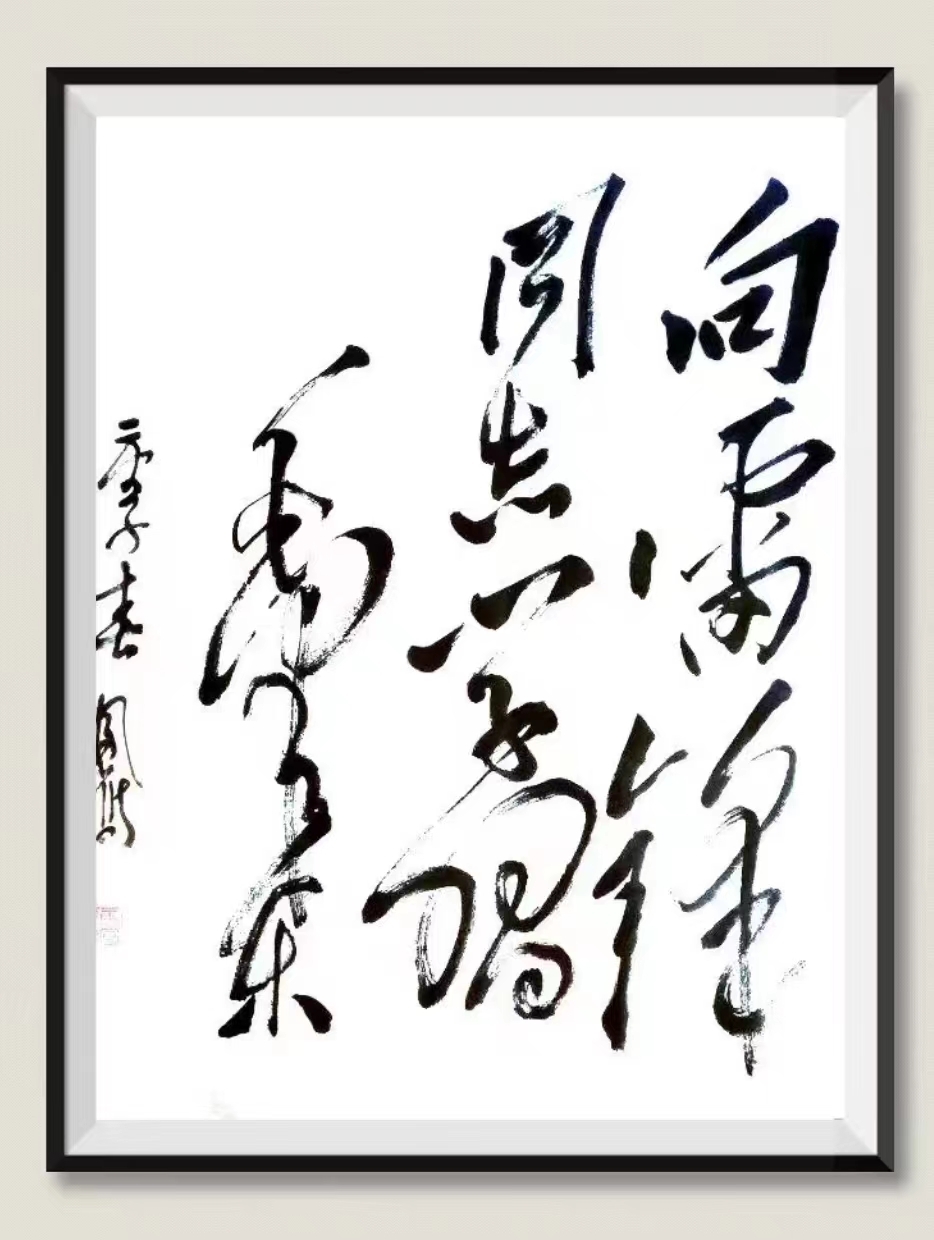 向雷锋
同志学习
毛泽东
季春